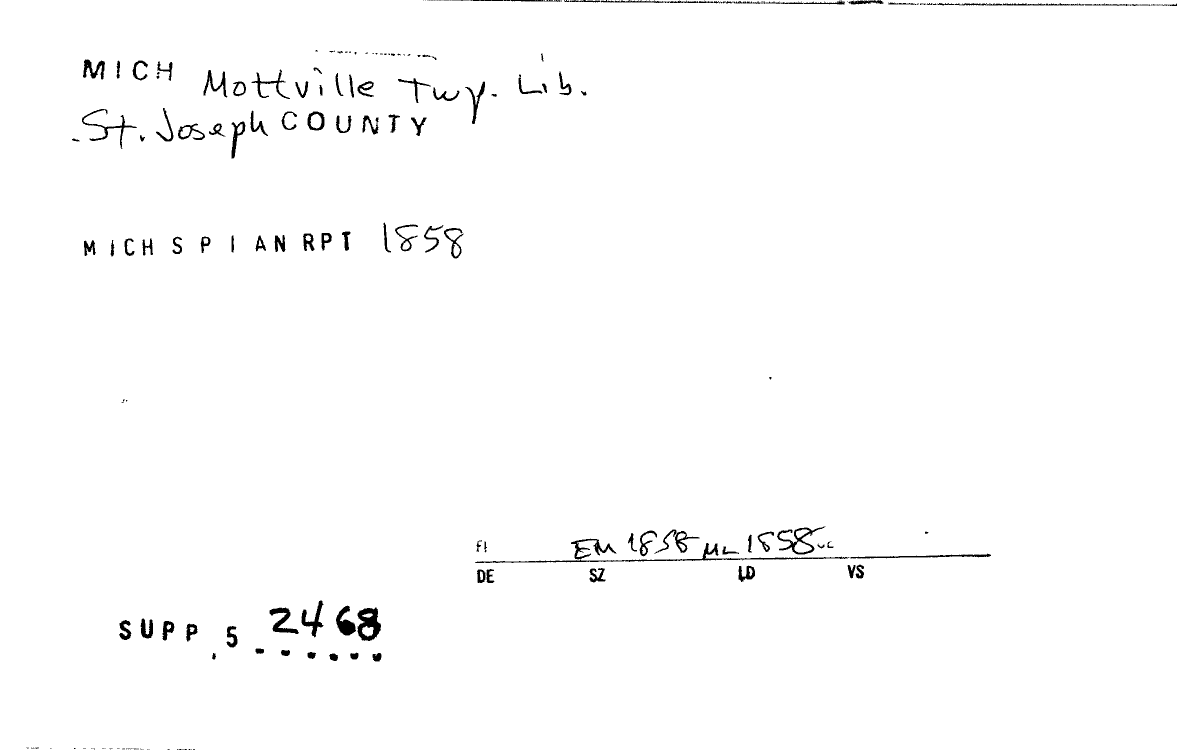 MICH Mottville Twp. Lib.
St. Joseph COUNTY
MICH S P I AN RPT 1858
FI EM 1858 ML 1858 UC
DE SZ LD VS
SUPP. 5 2468